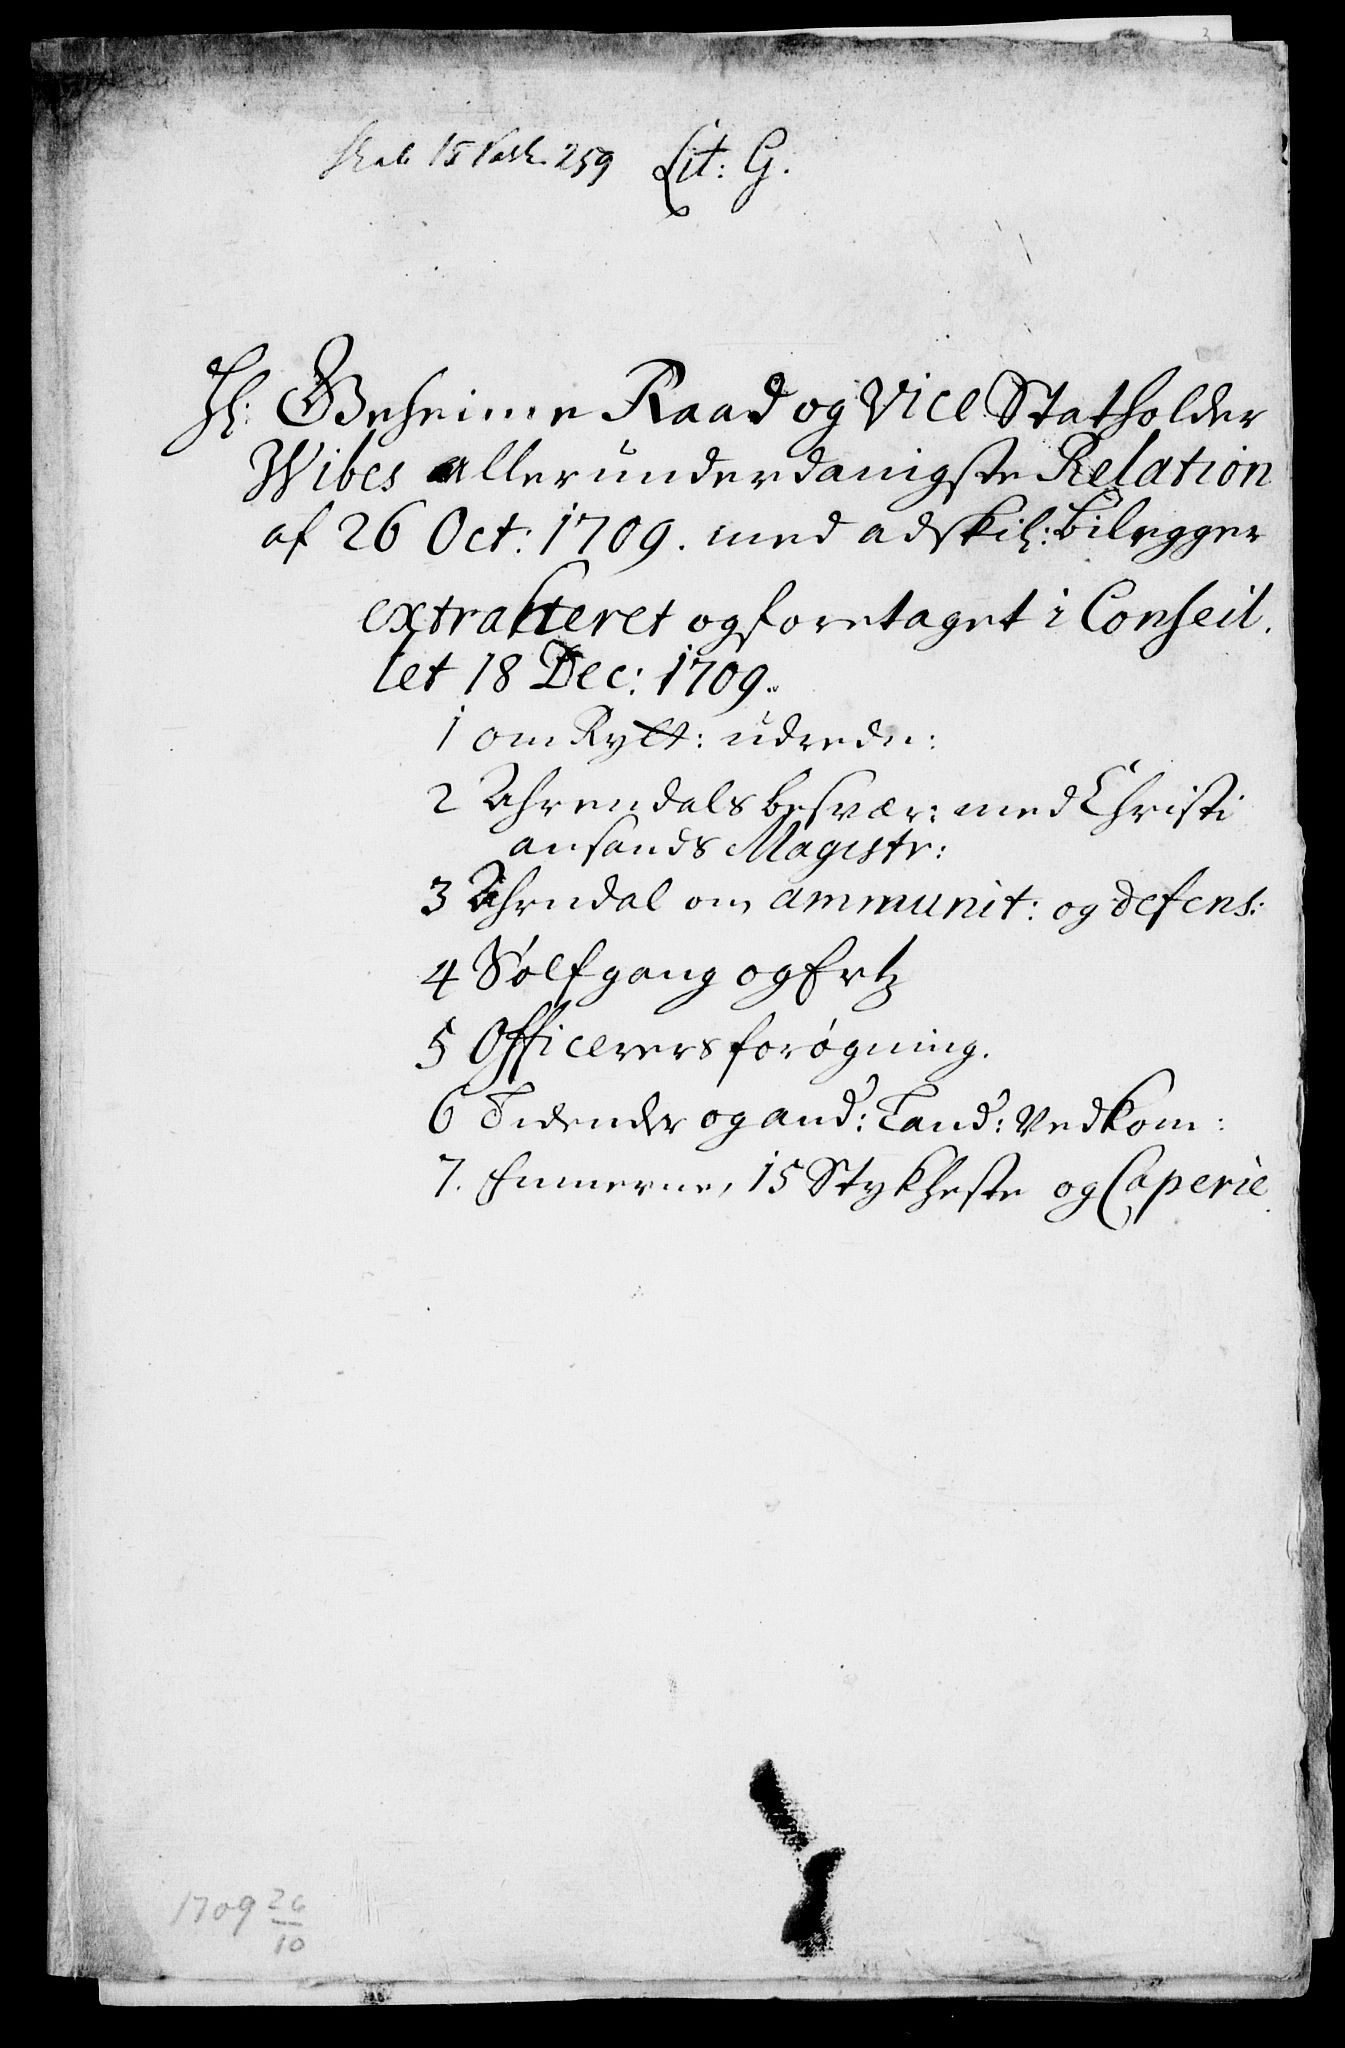 3
Skab 15 Pakk. 259 Lit: G.
H: Geheime Raad og Vice Statholder
Wibes allerunderdanigste Relation
af 26 Oct: 1709. med adskil: Bilegger
extrakteret og foretaget i Conseil.
let 18 Dec: 1709.
1 om Rytt: udrede:
2 Ahrendals besvær: med Christi
ansands Magistr:
3 Ahrndal om ammunit: og defens:
4 Sølfgang og Ertz
5 Officerers forøgning.
6 Tidender og and: Land: Vedkom:
7. Finnerne, 15 Stykheste og Caperie.
1709 26/10